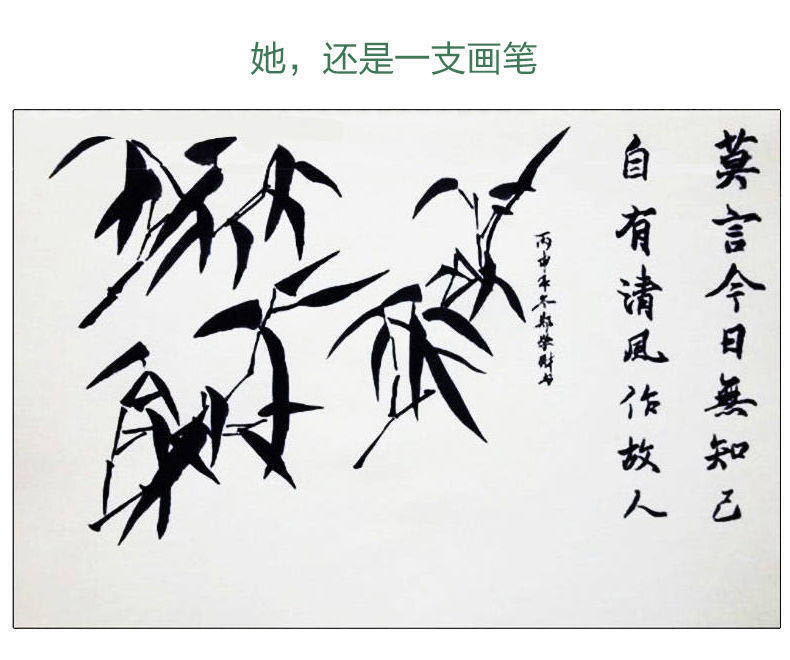 她，还是一支画笔
莫言今日無知己
自有清风作故人
丙申年冬郑学财书